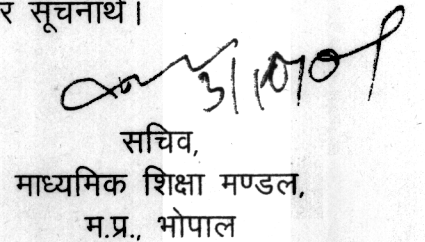 र सूचनार्थ।
सचिव,
माध्यमिक शिक्षा मण्डल,
म.प्र., भोपाल